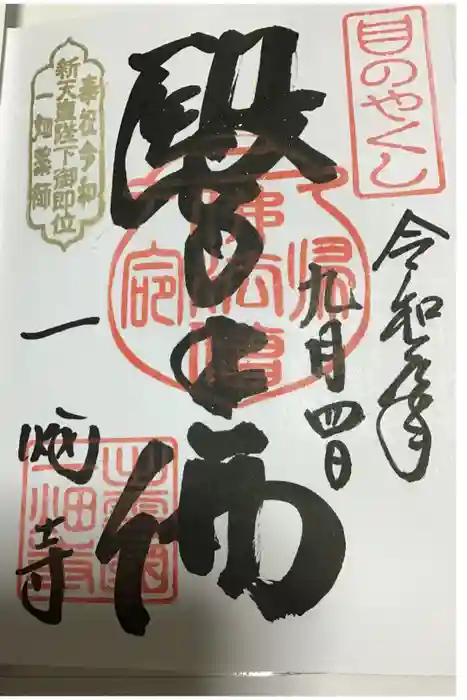 目のやくし
令和元年
九月四日
醫王佛
奉祝令和
新天皇陛下御即位
一畑薬師
一畑寺
出雲國
一畑寺